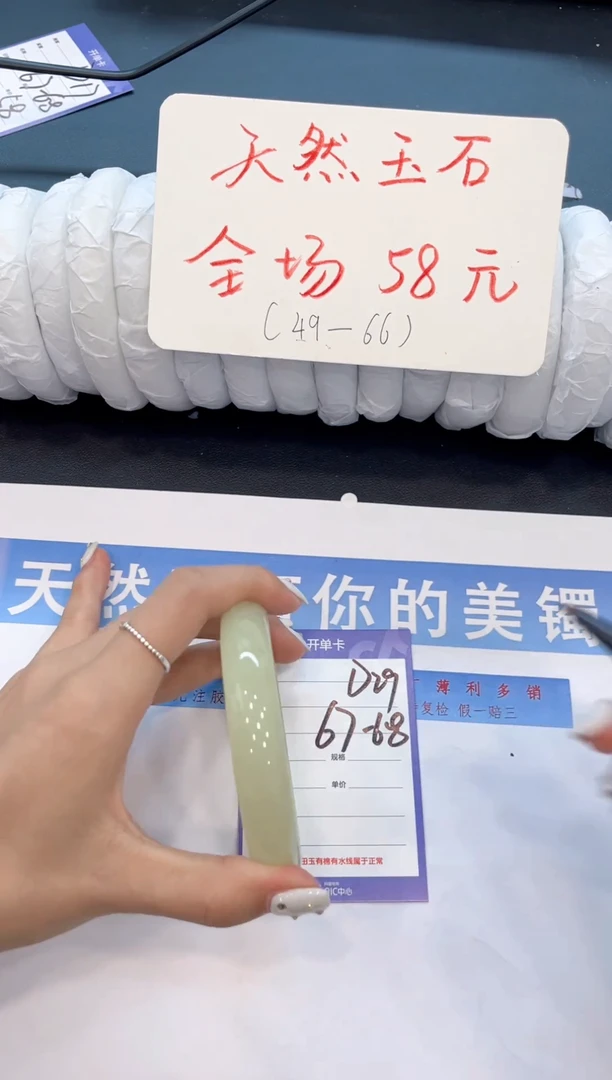 开单卡
67-68
天然玉石
全场58元
(49-66)
天然 你的美镯
开单卡
D29
67-68
规格
单价
田玉有棉有水线属于正常
IC中心
注胶
薄利多销
复检 假一赔三